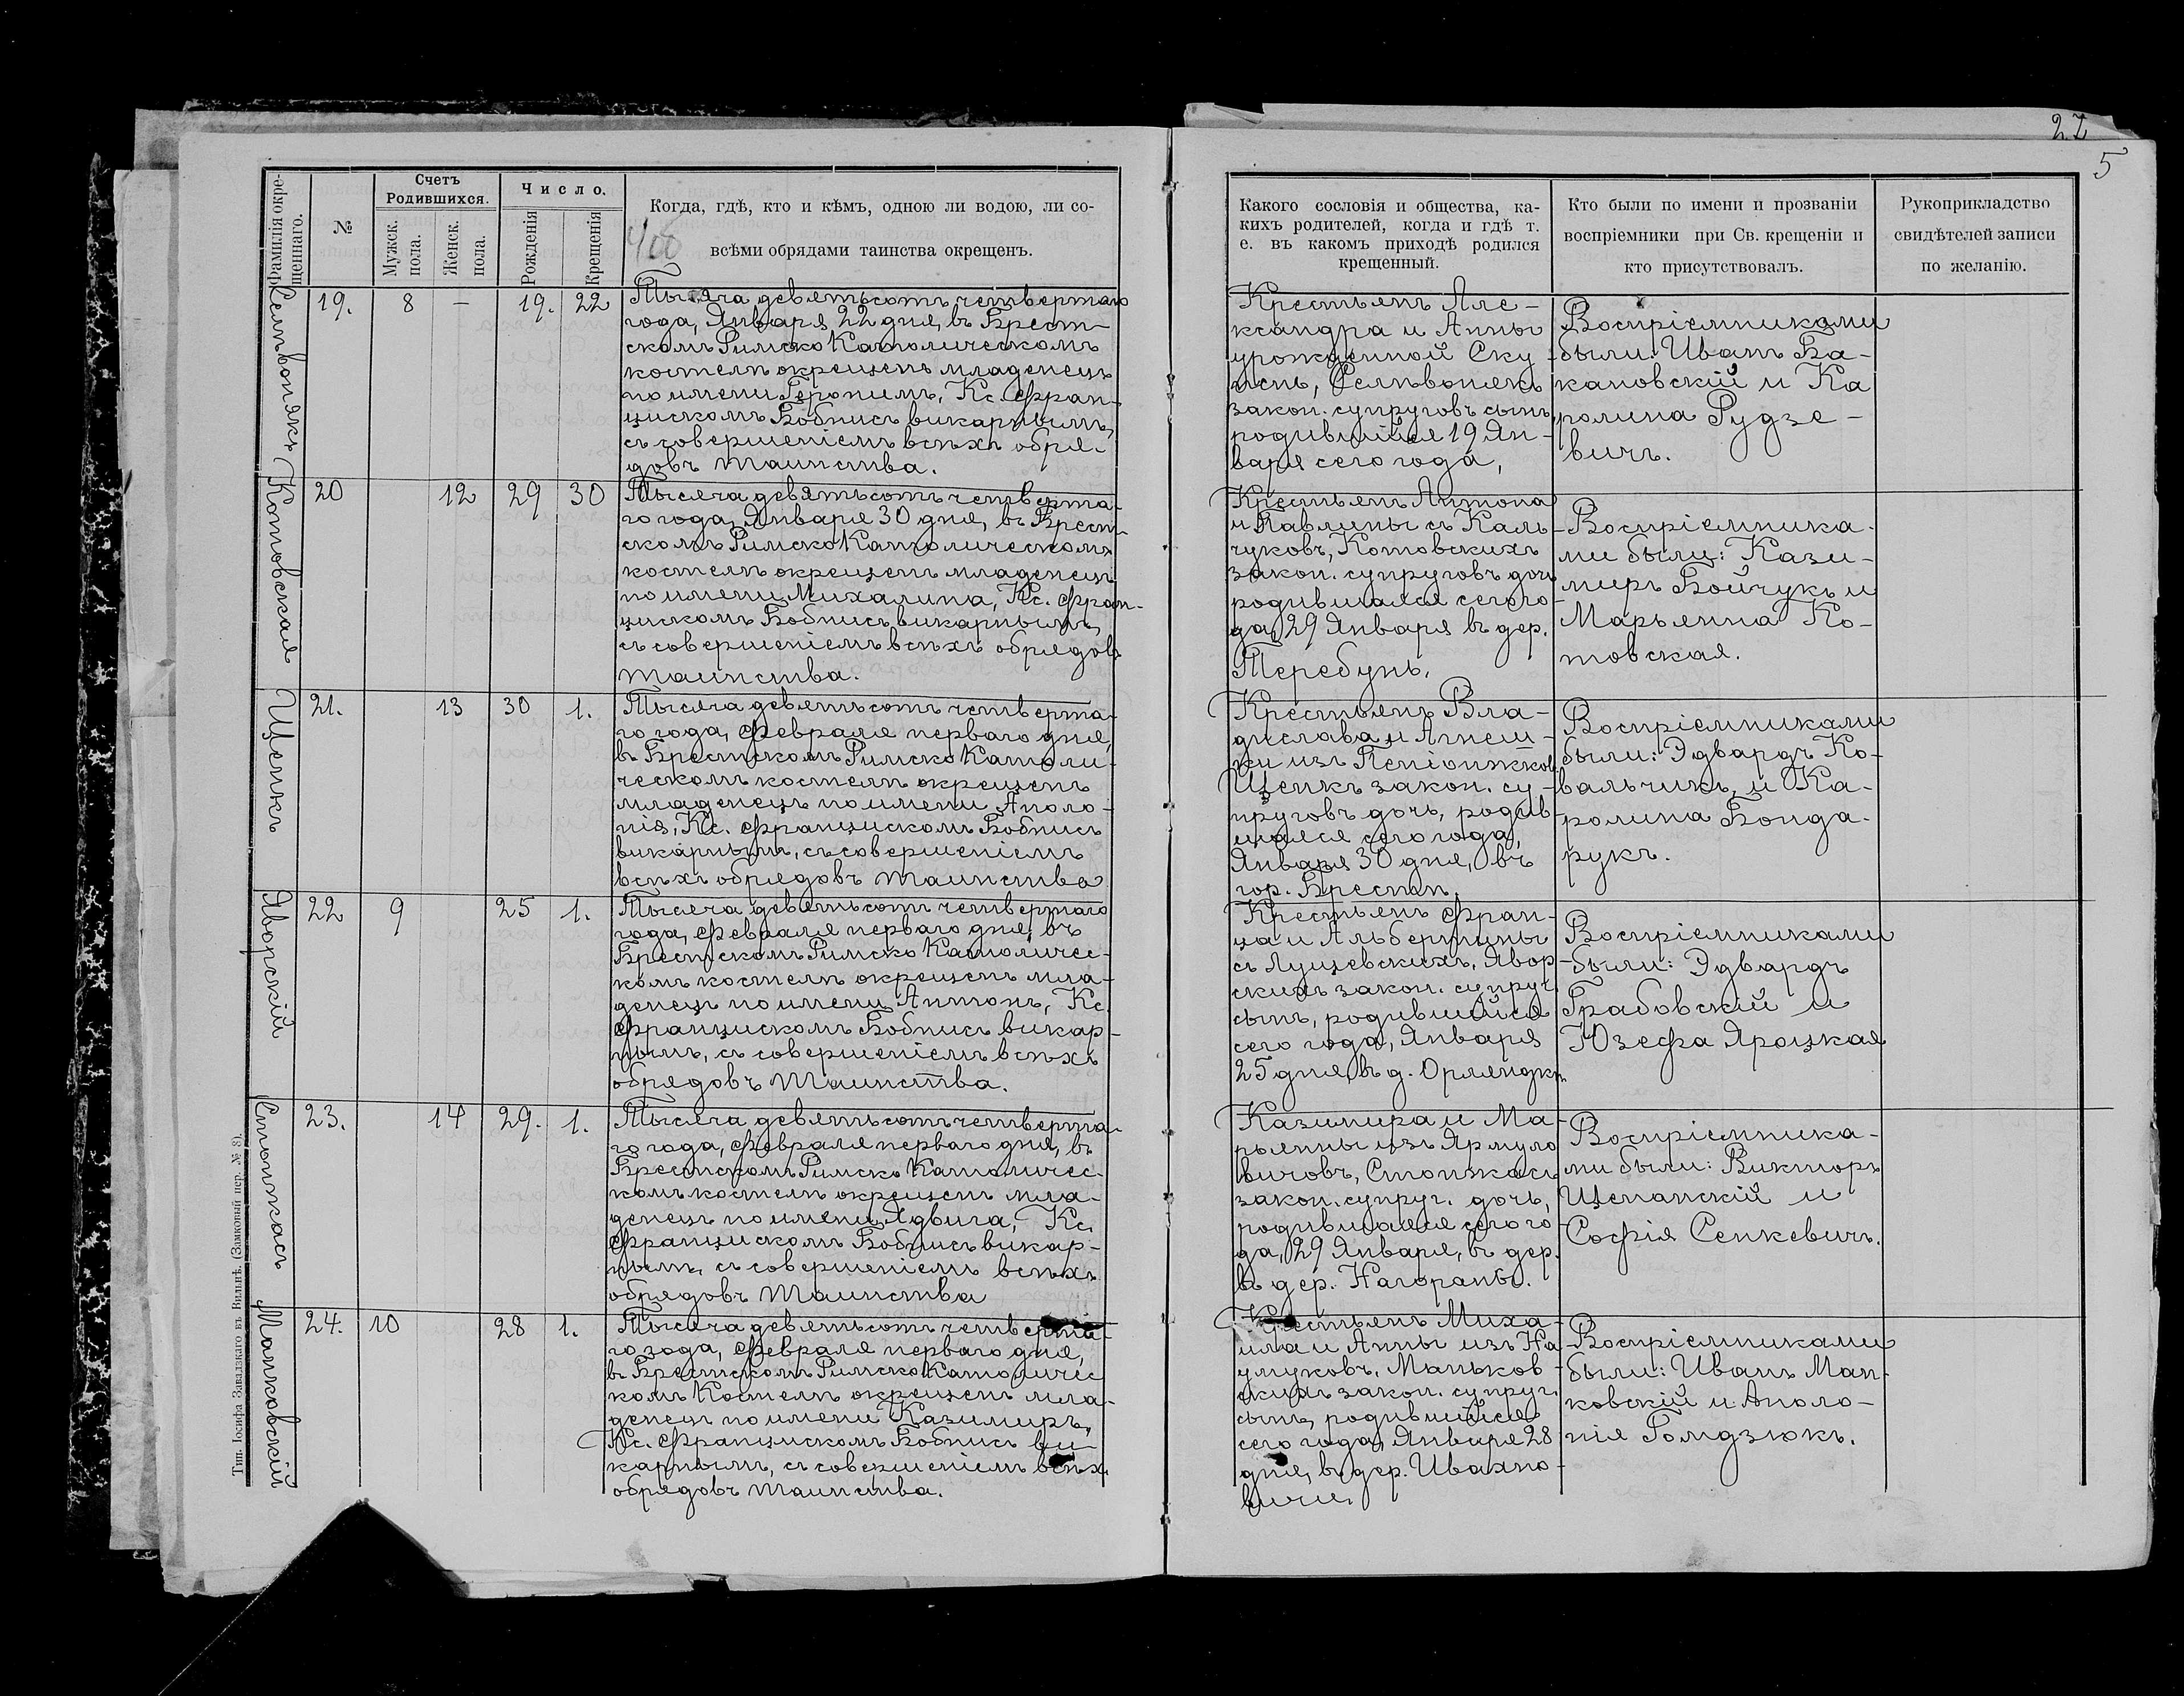 27
5
Фамилія окре-
щеннаго.
№
Счетъ
Родившихся.
Мужск.
пола.
Женск.
пола.
Число.
Рожденія
Крещенія
Когда, гдѣ, кто и кѣмъ, одною ли водою, ли со-
всѣми обрядами таинства окрещенъ.
Какого сословія и общества, ка-
кихъ родителей, когда и гдѣ т.
е. въ какомъ приходѣ родился
крещенный.
Кто были по имени и прозваніи
воспріемники при Св. крещеніи и
кто присутствовалъ.
Рукоприкладство
свидѣтелей записи
по желанію.
Сельвонякъ
19.
8
—
19.
22
Тысяча девятьсотъ четвертаго
года, Января 22 дня, въ Брест-
скомъ Римско Католическомъ
костелѣ окрещенъ младенецъ
по имени Геронимъ, Кс. Фран-
цискомъ Бобнисъ викарнымъ,
съ совершеніемъ всѣхъ обря-
довъ таинства.
Крестьянъ Але-
ксандра и Анны
урожденной Ску
, Сельвонякъ
закон. супруговъ сынъ,
родившійся 19 Ян-
варя сего года,
Воспріемниками
были: Иванъ Ба-
кановскій и Ка
ролина Рудзе-
вичъ.
Котовская
20
12
29
30
Тысяча девятьсотъ четверта-
го года, Января 30 дня, въ Брест-
скомъ Римско Католическомъ
костелѣ окрещенъ младенецъ
по имени Михалина, Кс. Фран-
цискомъ Бобнисъ викарнымъ,
съ совершеніемъ всѣхъ обрядовъ
таинства.
Крестьянъ Антона
и Павлины съ Каль-
чуковъ, Котовскихъ
закон. супруговъ дочь
родившаяся сего го-
да, 29 Января въ дер.
Теребунь.
Воспріемника-
ми были: Кази-
миръ Бойчукъ и
Марьянна Ко-
товская.
Щепкъ
21.
13
30
1.
Тысяча девятьсотъ четверта-
го года, Февраля перваго дня,
въ Брестскомъ Римско Католи-
ческомъ костелѣ окрещенъ
младенецъ по имени Аполо-
нія, Кс. Францискомъ Бобнисъ
викарнымъ, съ совершеніемъ
всѣхъ обрядовъ таинства
Крестьянъ Вла-
дислава и Агнеш-
ки изъ
закон. су-
пруговъ дочь, родив-
шаяся сего года,
Января 30 дня, въ
гор. Брестѣ.
Воспріемниками
были: Эдвардъ Ко-
вальчикъ, и Ка-
ролина Бонда-
рукъ.
Яворскій
22
9
25
1.
Тысяча девятьсотъ четвертаго
года, Февраля перваго дня, въ
Брестскомъ Римско Католичес-
комъ костелѣ окрещенъ мла-
денецъ по имени Антонъ, Кс.
Францискомъ Бобнисъ викар-
нымъ, съ совершеніемъ всѣхъ
обрядовъ таинства.
Крестьянъ Фран-
ца и Альбертины
съ Лущевскихъ, Явор-
скихъ закон. супруг.
сынъ, родившійся
сего года, Января
25 дня, въ д. Орляндки.
Воспріемниками
были: Эдвардъ
Грабовскій и
Юзефа Яроцкая
Стонжкасъ
23.
14
29.
1.
Тысяча девятьсотъ четверта-
го года, Февраля перваго дня, въ
Брестскомъ Римско Католичес-
комъ костелѣ окрещенъ мла-
денецъ по имени Ядвига, Кс.
Францискомъ Бобнисъ викар-
нымъ, съ совершеніемъ всѣхъ
обрядовъ таинства
Казимира и Ма-
рьянны изъ Ярмуло
вичовъ, Стонжкасъ
закон. супруг. дочь,
родившаяся сего го
да, 29 Января, въ дер.
въ дер. Нагораны.
Воспріемника-
ми были: Викторъ
Щепанскій и
Софія Сенкевичъ.
Манковскій
24.
10
28
1.
Тысяча девятьсотъ четверта-
го года, Февраля перваго дня,
въ Брестскомъ Римско Католичес
комъ Костелѣ окрещенъ мла-
денецъ по имени Казимиръ,
Кс. Францискомъ Бобнисъ ви-
карнымъ, съ совершеніемъ всѣхъ
обрядовъ таинства.
Крестьянъ Миха-
ила и Анны изъ На
умуковъ, Маньков-
скихъ закон. супруг.
сынъ, родившійся
сего года, Января 28
дня, въ дер. Ивахно-
вичи.
Воспріемниками
были: Иванъ Ман-
ковскій и Аполо-
нія Гомдзюкъ.
Тип. Іосифа Завадзкаго въ Вильнѣ. (Замковый пер. № 8).